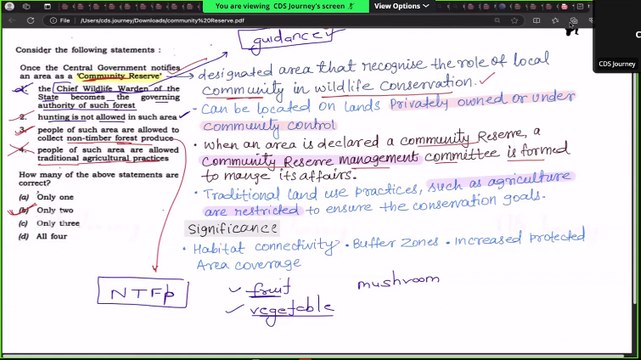 You are viewing CDS Journey's screen
View Options
File
/Users/cds.journey/Downloads/community%20Reserve.pdf
CDS Journey
Consider the following statements :
Once the Central Government notifies
an area as a 'Community Reserve'
1. the Chief Wildlife Warden of the
State becomes the governing
authority of such forest
2. hunting is not allowed in such area
3. people of such area are allowed to
collect non-timber forest produce
4. people of such area are allowed
traditional agricultural practices
How many of the above statements are
correct?
(a) Only one
(b) Only two
(c) Only three
(d) All four
guidance
designated area that recognise the role of local
community in wildlife Conservation.
• Can be located on lands Privately owned or under
community control
• when an area is declared a community Reserve, a
community Reserve management committee is formed
to mange its affairs.
• Traditional land use practices, such as agriculture
are restricted to ensure the conservation goals.
Significance
• Habitat connectivity • Buffer Zones • Increased protected
Area coverage
NTFP
fruit
vegetable
mushroom